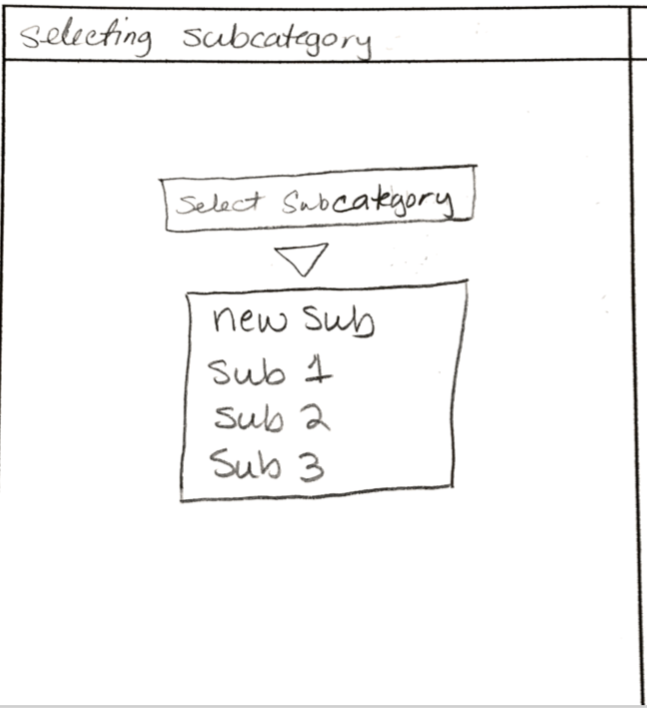 selecting subcategory
Select Subcategory
new sub
sub 1
sub 2
Sub 3